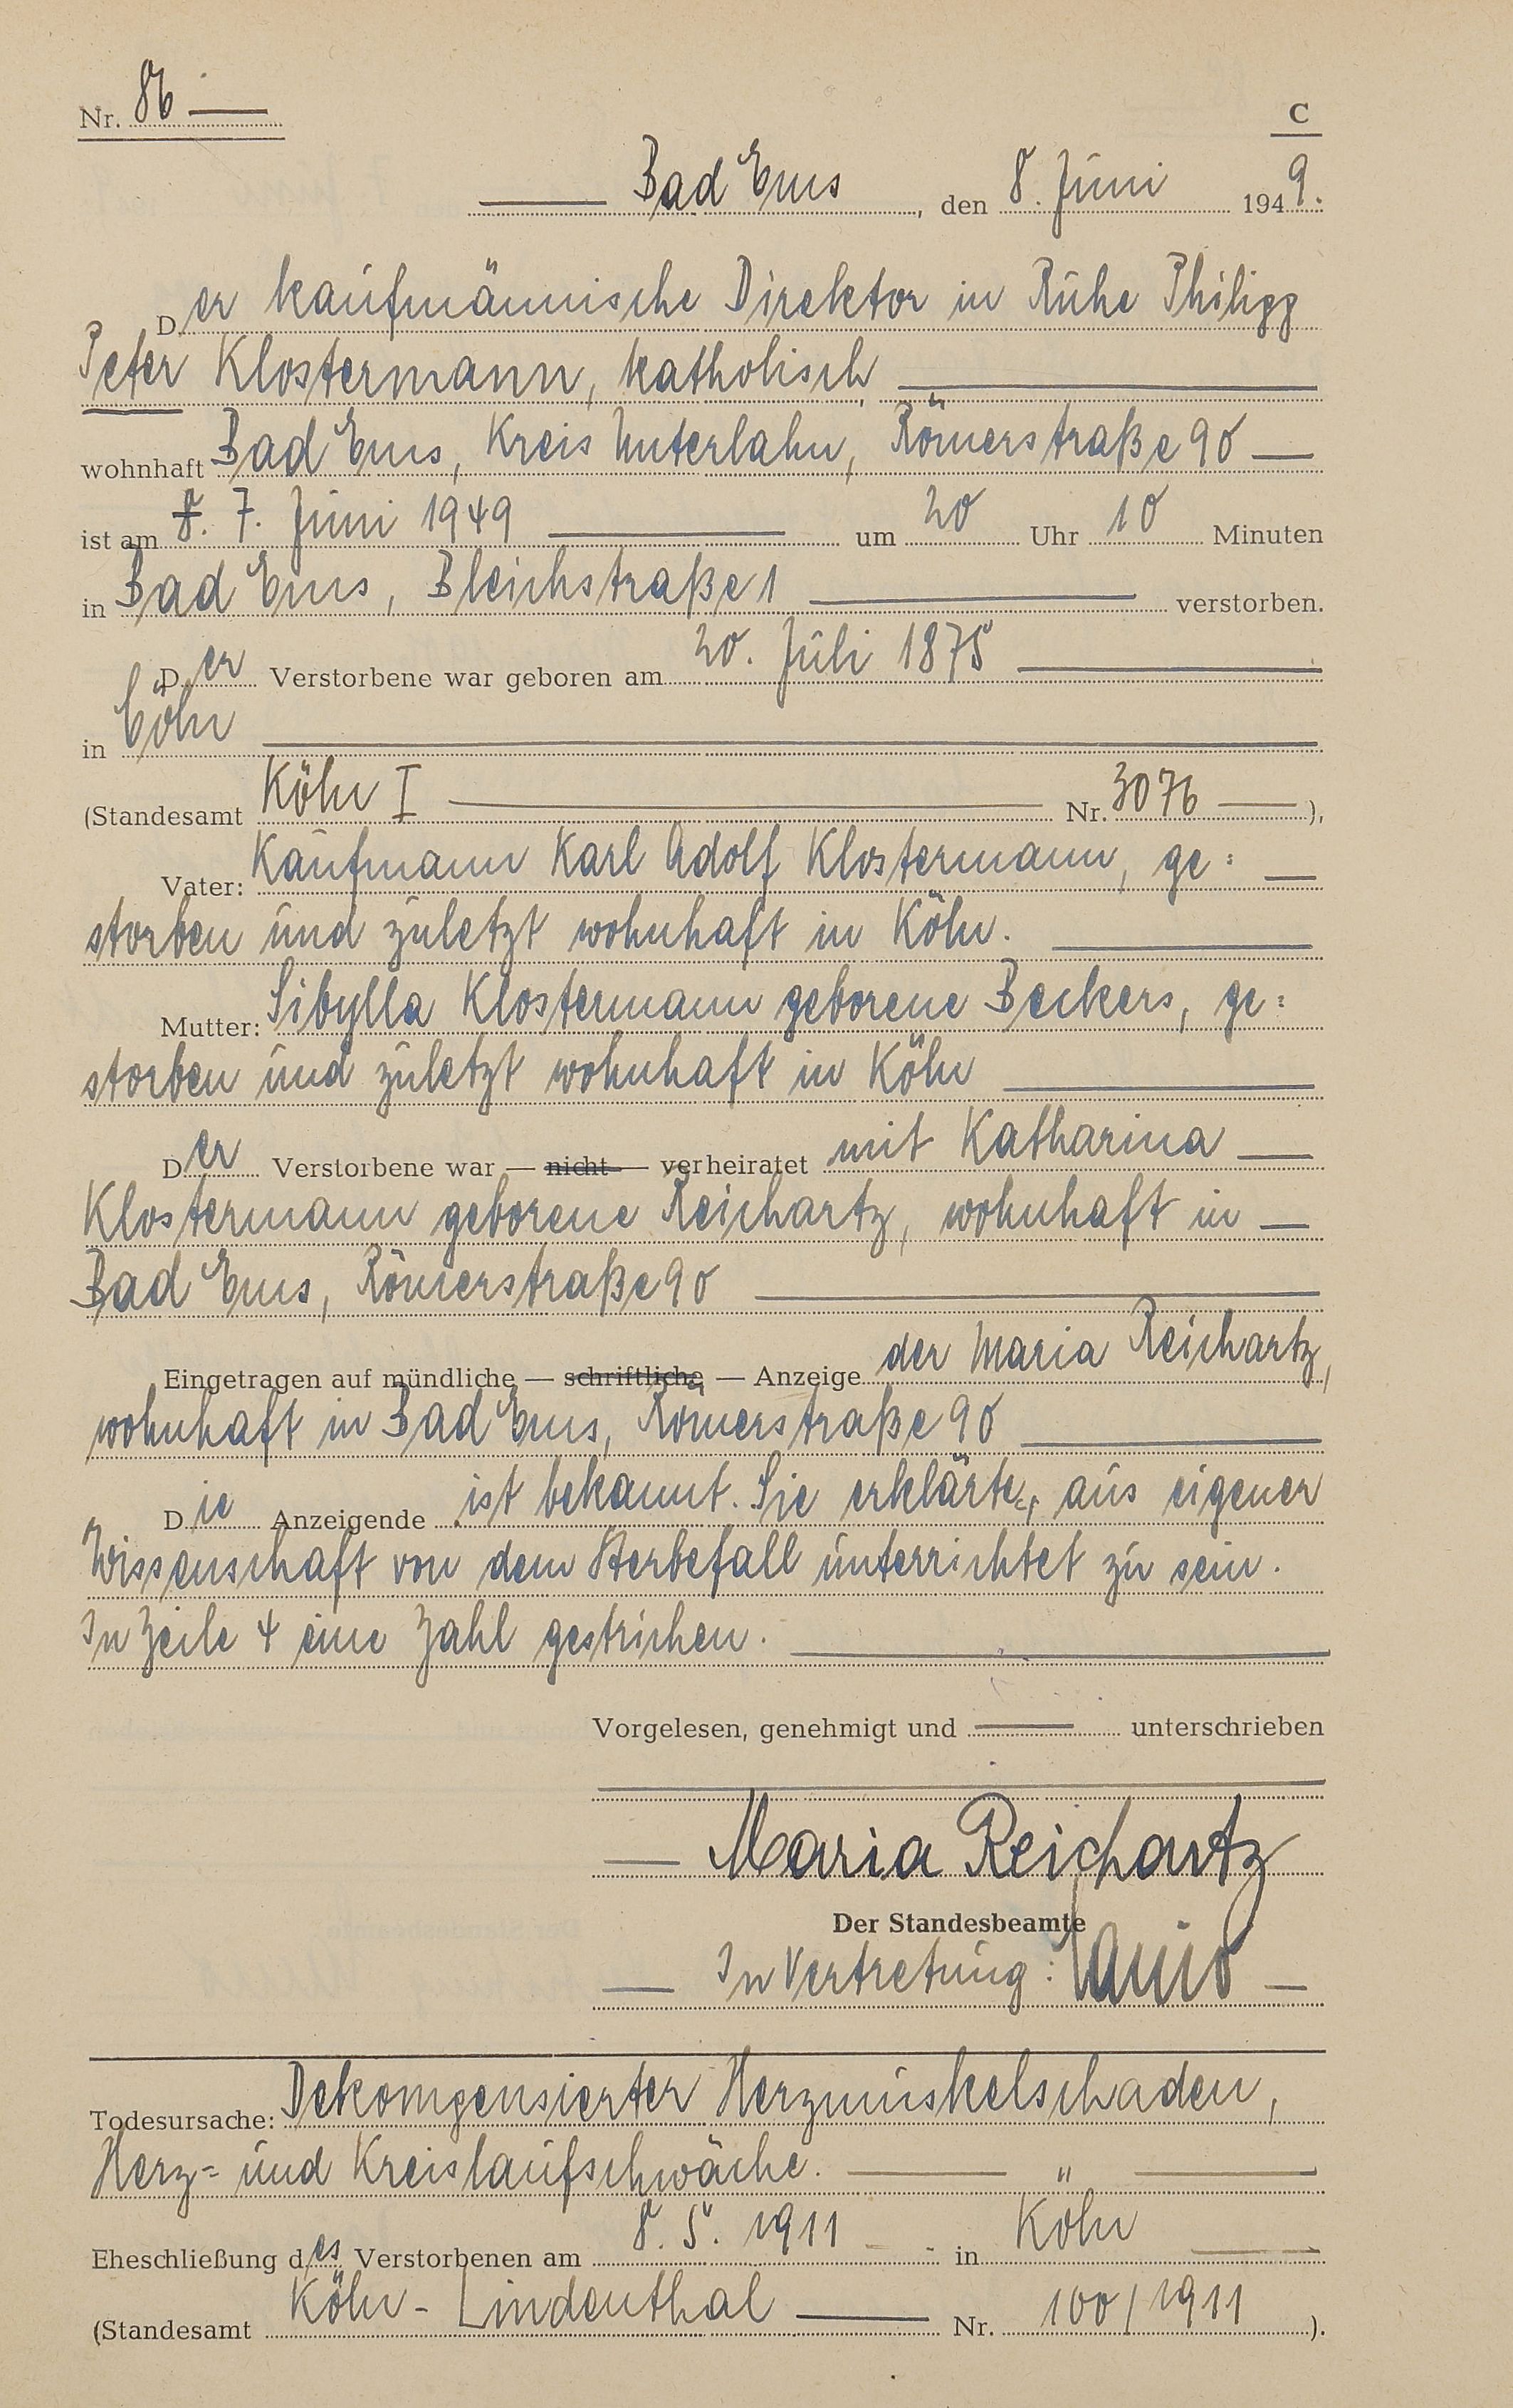 Nr. 86 —
C
— Bad Ems, den 8. Juni 1949.
Der kaufmännische Direktor in Ruhe Philipp
Peter Klostermann, katholisch —
wohnhaft Bad Ems, Kreis Unterlahn, Römerstraße 90 —
ist am 8. 7. Juni 1949 — um 20 Uhr 10 Minuten
in Bad Ems, Bleichstraße 1 — verstorben.
Der Verstorbene war geboren am 20. Juli 1875 —
in Cöln —
(Standesamt Köln I — Nr. 3076 —),
Vater: Kaufmann Karl Adolf Klostermann, ge= —
storben und zuletzt wohnhaft in Köln. —
Mutter: Sibylla Klostermann geborene Beckers, ge=
storben und zuletzt wohnhaft in Köln —
Der Verstorbene war — nicht — verheiratet mit Katharina —
Klostermann geborene Reichartz, wohnhaft in —
Bad Ems, Römerstraße 90 —
Eingetragen auf mündliche — schriftliche — Anzeige der Maria Reichartz,
wohnhaft in Bad Ems, Römerstraße 90 —
Die Anzeigende ist bekannt. Sie erklärte, aus eigener
Wissenschaft von dem Sterbefall unterrichtet zu sein.
In Zeile 4 eine Zahl gestrichen. —
Vorgelesen, genehmigt und — unterschrieben
— Maria Reichartz
Der Standesbeamte
— In Vertretung: —
Todesursache: Dekompensierter Herzmuskelschaden,
Herz= und Kreislaufschwäche. — " —
Eheschließung des Verstorbenen am 8. 5. 1911 — in Köln —
(Standesamt Köln-Lindenthal — Nr. 100/1911).